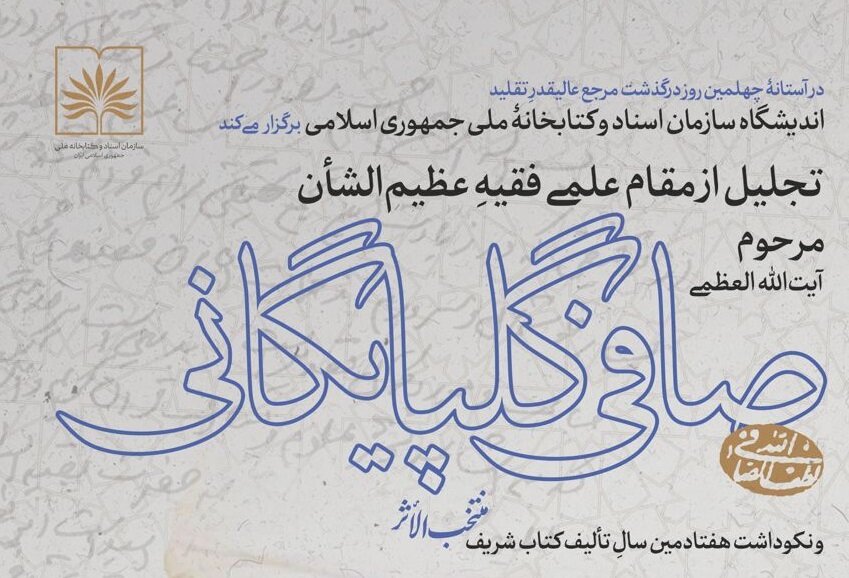 سازمان اسناد و کتابخانه ملی
جمهوری اسلامی ایران
در آستانهٔ چهلمین روز درگذشت مرجع عالیقدرِ تقلید
اندیشگاه سازمان اسناد و کتابخانهٔ ملی جمهوری اسلامی برگزار می‌کند
تجلیل از مقام علمی فقیهِ عظیم الشأن
مرحوم
آیت الله العظمی
صافی گلپایگانی
لطف الله صافی
و نکوداشت هفتادمین سالِ تألیف کتاب شریف منتخب الأثر